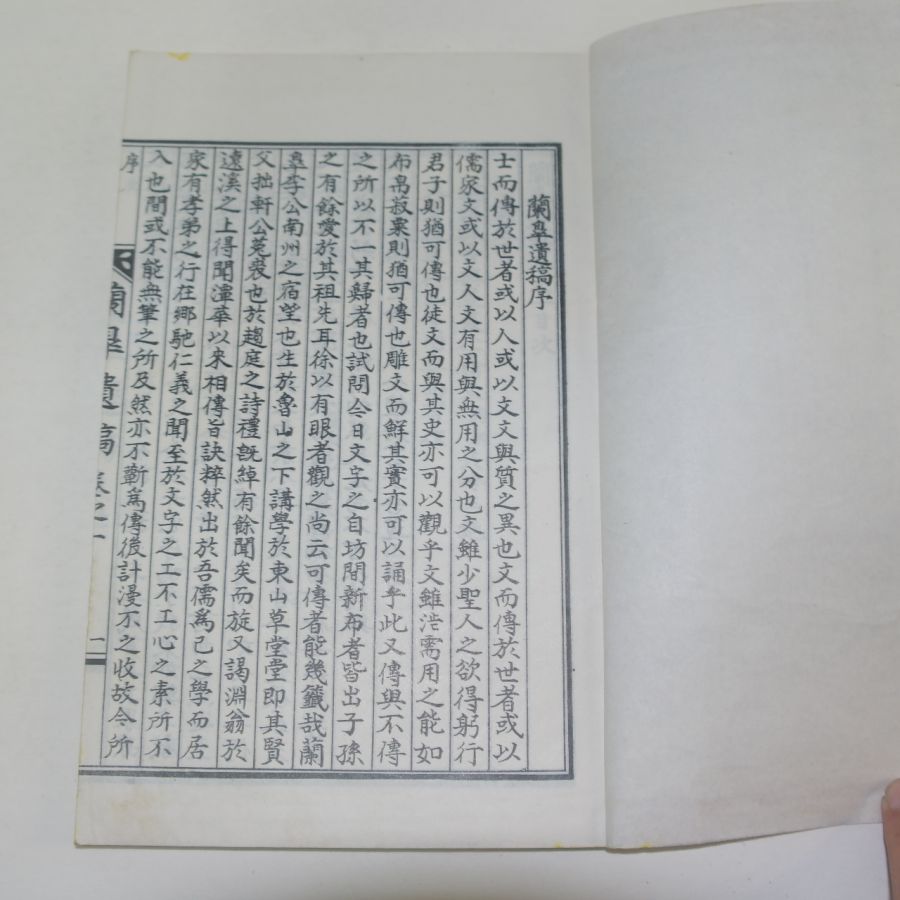 蘭臯遺稿序
士而傳於世者或以人或以文文與質之異也文而傳於世者或以
儒家文或以文人文有用與無用之分也文雖少聖人之欲得躬行
君子則猶可傳也徒文而與其史亦可以觀乎文雖浩需用之能如
布帛菽粟則猶可傳也雕文而鮮其實亦可以誦乎此又傳與不傳
之所以不一其歸者也試問今日文字之自坊間新布者皆出子孫
之有餘愛於其祖先耳徐以有眼者觀之尚云可傳者能幾籤哉蘭
臯李公南州之宿望也生於魯山之下講學於東山草堂堂即其賢
父拙軒公菟裘也於趨庭之詩禮旣綽有餘聞矣而旋又謁淵翁於
遠溪之上得聞潭華以來相傳旨訣粹然出於吾儒爲己之學而居
家有孝弟之行在鄕馳仁義之聞至於文字之工不工心之素所不
入也間或不能無筆之所及然亦不蘄爲傳後計漫不之收故今所
序
蘭臯遺稿 卷之一
一